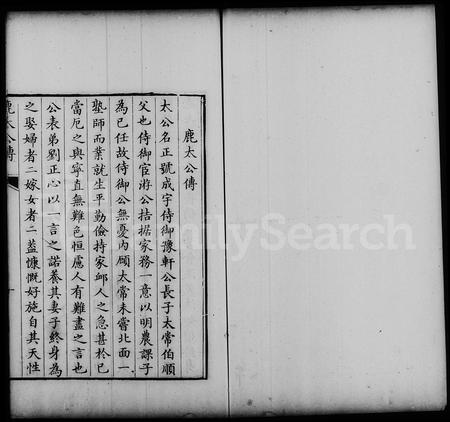 鹿太公傳
太公名正號成宇侍御豫軒公長子太常伯順
父也侍御宦游公拮据家務一意以明農課子
為已任故侍御公無憂內顧太常未嘗北面一
塾師而業就生平勤儉持家䘏人之急甚於已
當厄之與寧直無難色恒慮人有難盡之言也
公表弟劉正心以一言之諾養其妻子終身為
之娶婦者二嫁女者二蓋慷慨好施自其天性
鹿太公傳
一
FamilySearch